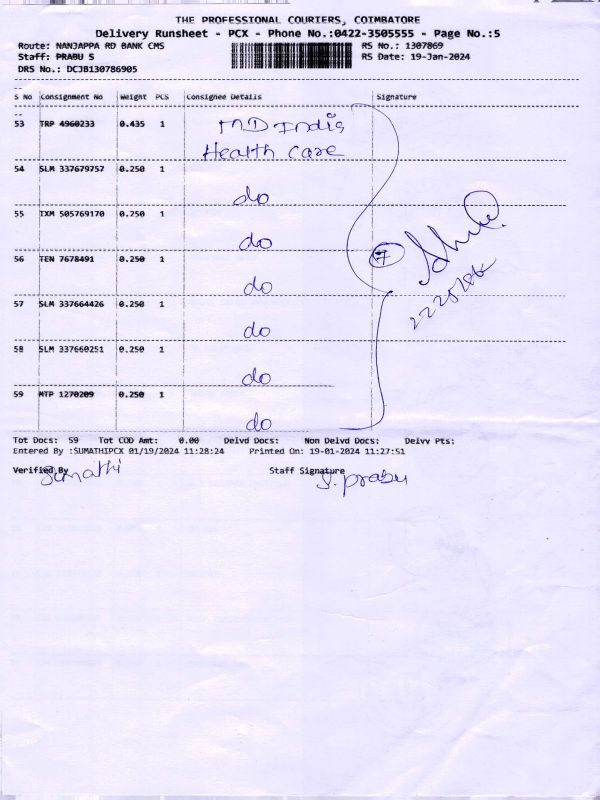 THE PROFESSIONAL COURIERS, COIMBATORE
Delivery Runsheet - PCX - Phone No.:0422-3505555 - Page No.:5
Route: NANJAPPA RD BANK CMS RS No.: 1307869
Staff: PRABU S RS Date: 19-Jan-2024
DRS No.: DCJB130786905
S No Consignment No Weight PCS Consignee Details Signature
53 TRP 4960233 0.435 1 MD India
Health care
54 SLM 337679757 0.250 1
do
55 IXM 505769170 0.250 1
do
56 TEN 7678491 0.250 1
do
57 SLM 337664426 0.250 1
do
58 SLM 337660251 0.250 1
do
59 MTP 1270209 0.250 1
do
7
Tot Docs: 59 Tot COD Amt: 0.00 Delvd Docs: Non Delvd Docs: Delvv Pts:
Entered By :SUMATHIPCX 01/19/2024 11:28:24 Printed On: 19-01-2024 11:27:51
Verified By Staff Signature
Sumathi S. prabu